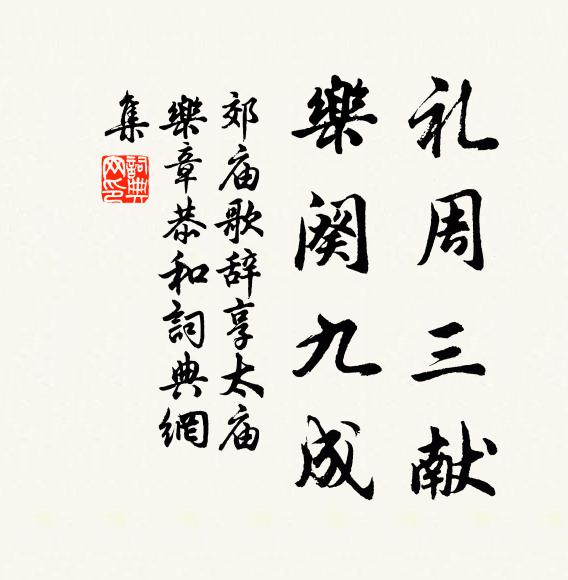 礼周三献
樂闋九成
郊庙歌辞享太庙
樂章恭和詞典網
集
詞典网印